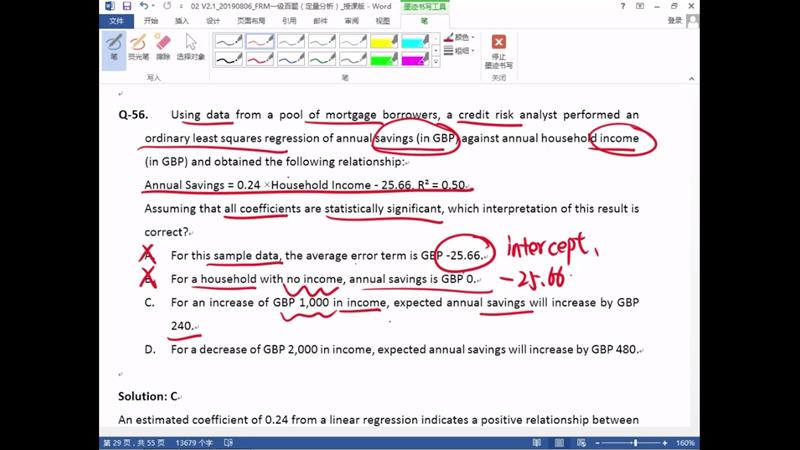 02 V2.1_20190806_FRM一级百题（定量分析）_授课版 - Word
墨迹书写工具
文件 开始 插入 设计 页面布局 引用 邮件 审阅 视图 笔
登录
笔 荧光笔 橡皮擦 选择对象
颜色
粗细
停止
墨迹书写
写入 笔 关闭
Q-56. Using data from a pool of mortgage borrowers, a credit risk analyst performed an
ordinary least squares regression of annual savings (in GBP) against annual household income
(in GBP) and obtained the following relationship:
Annual Savings = 0.24 ×Household Income - 25.66, R² = 0.50
Assuming that all coefficients are statistically significant, which interpretation of this result is
correct?
A. For this sample data, the average error term is GBP -25.66. intercept,
B. For a household with no income, annual savings is GBP 0. -25.66
C. For an increase of GBP 1,000 in income, expected annual savings will increase by GBP
240.
D. For a decrease of GBP 2,000 in income, expected annual savings will increase by GBP 480.
Solution: C
An estimated coefficient of 0.24 from a linear regression indicates a positive relationship between
第 29 页，共 55 页 13679 个字 160%